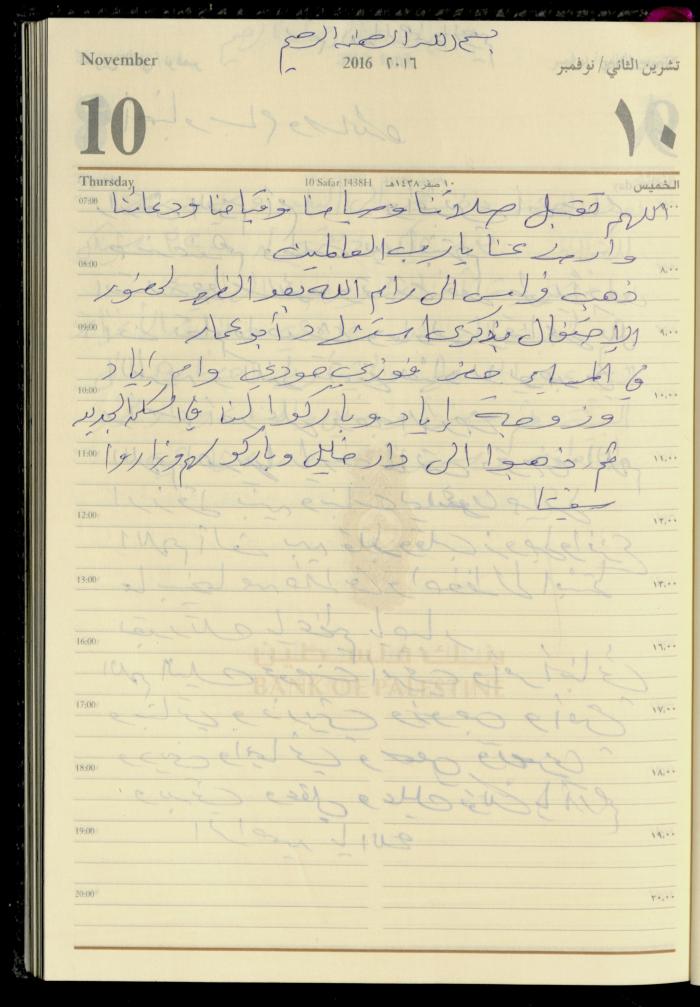 بسم الله الرحمن الرحيم
November
2016 ٢٠١٦
تشرين الثاني / نوفمبر
10
١٠
Thursday
10 Safar 1438H
١٠ صفر ١٤٣٨هـ
الخميس
07:00
اللهم تقبل صلاتنا وصيامنا وقيامنا ودعائنا
وارض عنا يا رب العالمين
08:00
٨,٠٠
ذهب فراس الى رام الله بعد الظهر لحضور
09:00
٩,٠٠
الاحتفال بذكرى استشهاد أبو عمار
في المساء حضر فوزي حمودي وام إياد
10:00
١٠,٠٠
وزوجة إياد وباركوا لنا في السكن الجديد
11:00
١١,٠٠
ثم ذهبوا الى دار خليل وباركو لهم وزاروا
12:00
١٢,٠٠
13:00
١٣,٠٠
16:00
١٦,٠٠
BANK OF PALESTINE
17:00
١٧,٠٠
18:00
١٨,٠٠
19:00
١٩,٠٠
20:00
٢٠,٠٠